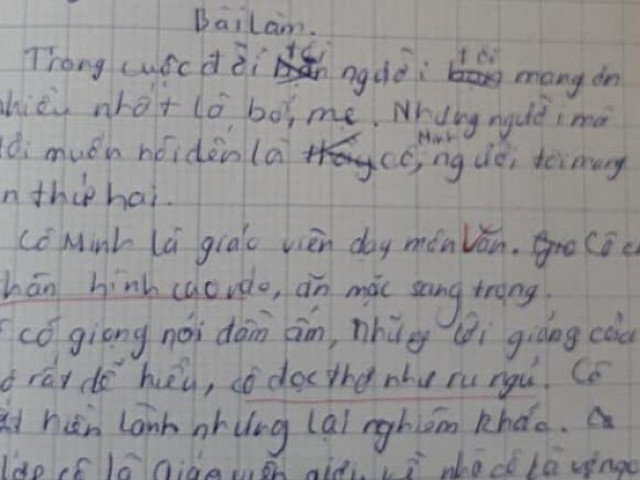 Bài làm.
Trong cuộc đời tôi người tôi mang ơn
nhiều nhất là bố, mẹ. Nhưng người mà
tôi muốn nói đến là cô Minh, người tôi mang
ơn thứ hai.
Cô Minh là giáo viên dạy môn Văn. Cô
thân hình cao ráo, ăn mặc sang trọng.
cố giọng nói đầm ấm, những lời giảng của
rất dễ hiểu, cô đọc thơ như ru ngủ. Cô
hiền lành nhưng lại nghiêm khắc.
cô là giáo viên về nhà cô là